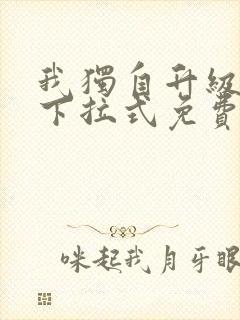 我獨自升級
下拉式免費
咪起我月牙眼